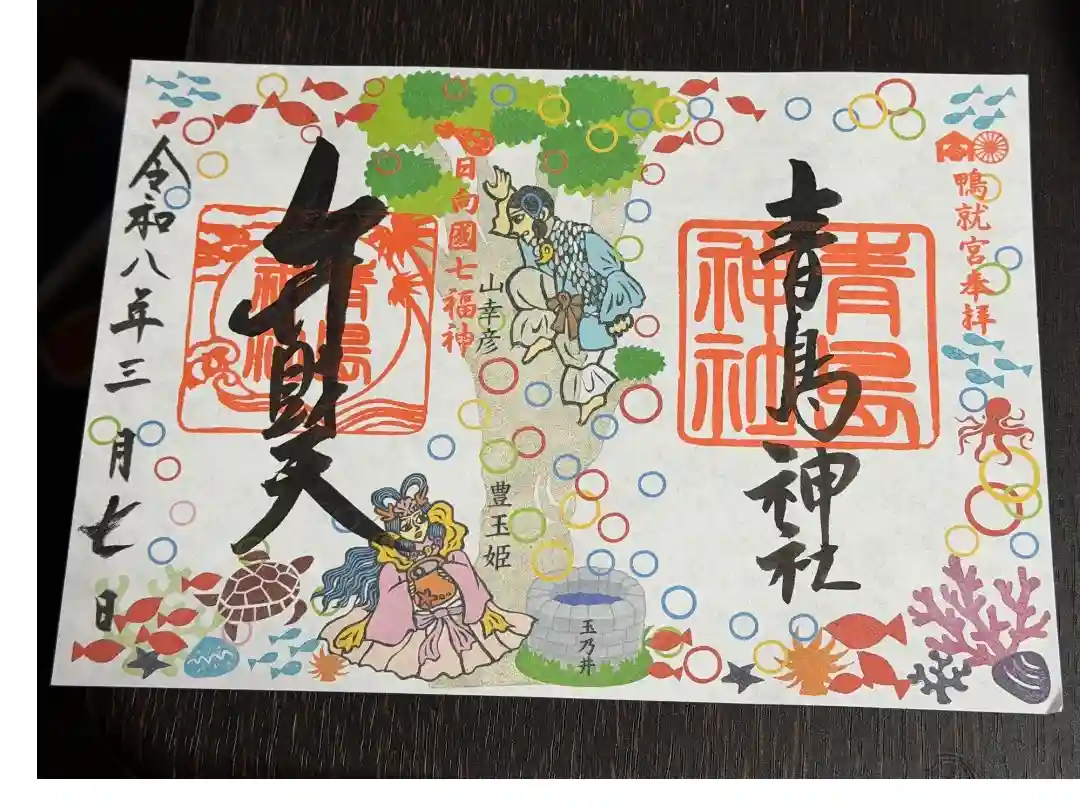 鴨就宮奉拝
青島神社
青島
神社
日向國七福神
山幸彦
豊玉姫
玉乃井
弁財天
青島
神社
令和八年三月七日